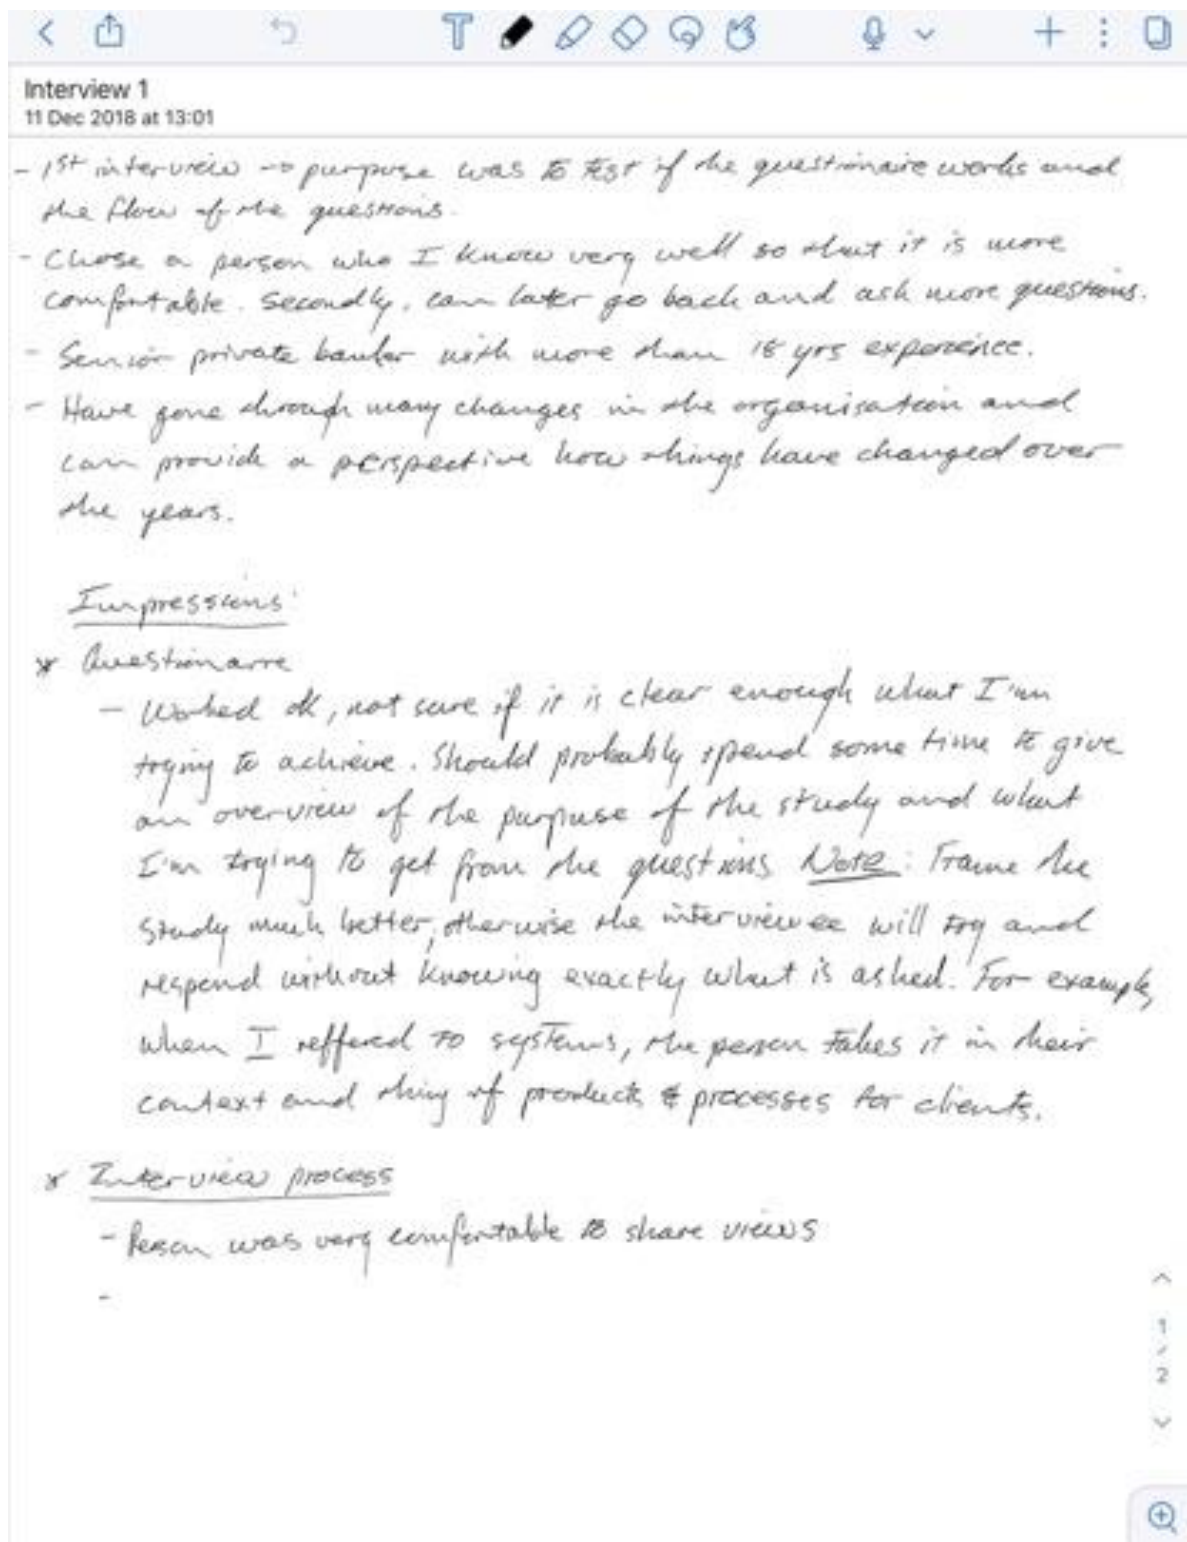 Interview 1
11 Dec 2018 at 13:01
- 1st interview → purpose was to test if the questionaire works and
the flow of the questions.
- Chose a person who I know very well so that it is more
comfortable. Secondly, can later go back and ask more questions.
- Senior private banker with more than 18 yrs experience.
- Have gone through many changes in the organisation and
can provide a perspective how things have changed over
the years.
Impressions:
* Questionarre
- Worked ok, not sure if it is clear enough what I'm
trying to achieve. Should probably spend some time to give
an overview of the purpose of the study and what
I'm trying to get from the questions. Note: Frame the
study much better, otherwise the interviewee will try and
respond without knowing exactly what is asked. For example,
when I reffered to systems, the person takes it in their
context and thing of products & processes for clients.
* Interview process
- Person was very comfortable to share views
-
1
/
2